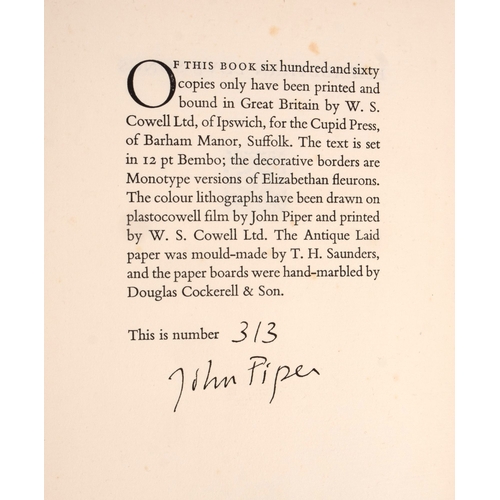 OF THIS BOOK six hundred and sixty
copies only have been printed and
bound in Great Britain by W. S.
Cowell Ltd, of Ipswich, for the Cupid Press,
of Barham Manor, Suffolk. The text is set
in 12 pt Bembo; the decorative borders are
Monotype versions of Elizabethan fleurons.
The colour lithographs have been drawn on
plastocowell film by John Piper and printed
by W. S. Cowell Ltd. The Antique Laid
paper was mould-made by T. H. Saunders,
and the paper boards were hand-marbled by
Douglas Cockerell & Son.
This is number 313
John Piper